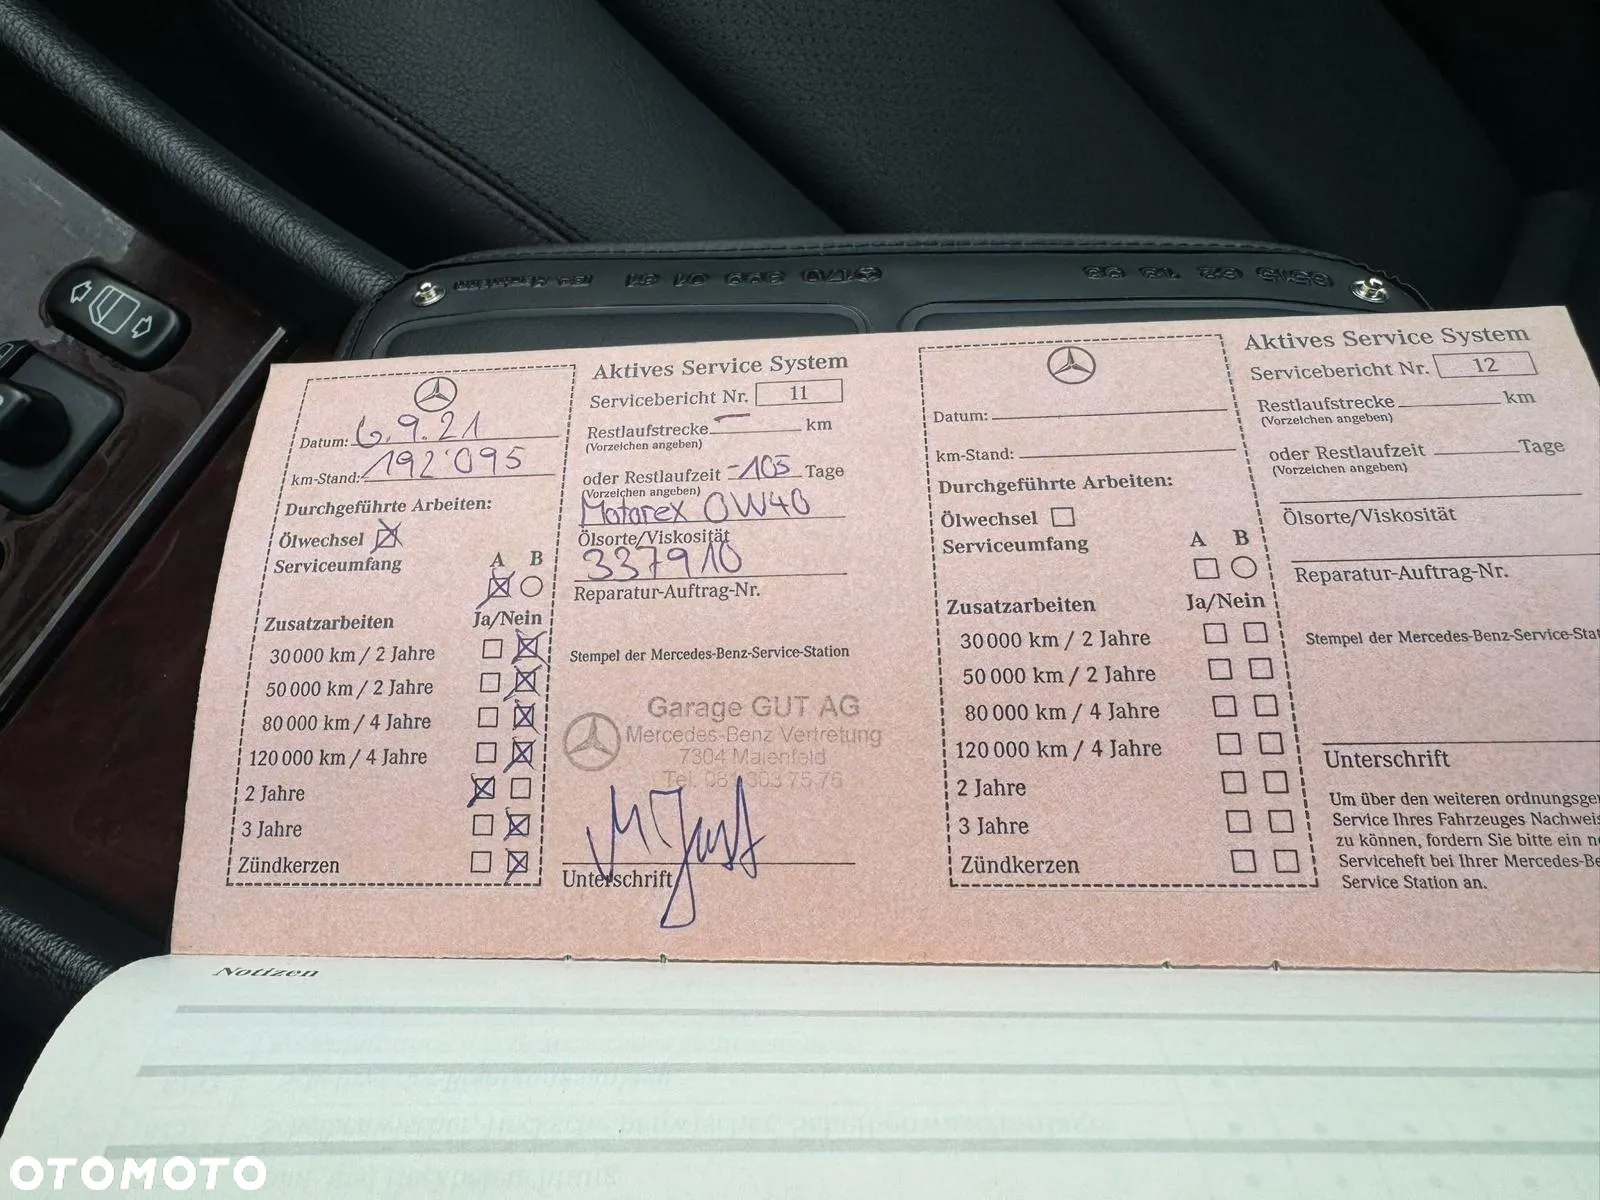 Aktives Service System
Servicebericht Nr. 11
Datum: 6.9.21
km-Stand: 192'095
Durchgeführte Arbeiten:
Ölwechsel
Serviceumfang
A B
Zusatzarbeiten Ja/Nein
30 000 km / 2 Jahre
50 000 km / 2 Jahre
80 000 km / 4 Jahre
120 000 km / 4 Jahre
2 Jahre
3 Jahre
Zündkerzen
Restlaufstrecke - km
(Vorzeichen angeben)
oder Restlaufzeit -105 Tage
(Vorzeichen angeben)
Motorex 0W40
Ölsorte/Viskosität
337910
Reparatur-Auftrag-Nr.
Stempel der Mercedes-Benz-Service-Station
Garage GUT AG
Mercedes-Benz Vertretung
7304 Maienfeld
Tel. 081 303 75 76
Unterschrift
Aktives Service System
Servicebericht Nr. 12
Datum:
km-Stand:
Durchgeführte Arbeiten:
Ölwechsel
Serviceumfang
A B
Zusatzarbeiten Ja/Nein
30 000 km / 2 Jahre
50 000 km / 2 Jahre
80 000 km / 4 Jahre
120 000 km / 4 Jahre
2 Jahre
3 Jahre
Zündkerzen
Restlaufstrecke km
(Vorzeichen angeben)
oder Restlaufzeit Tage
(Vorzeichen angeben)
Ölsorte/Viskosität
Reparatur-Auftrag-Nr.
Stempel der Mercedes-Benz-Service-Stat
Unterschrift
Um über den weiteren ordnungsge
Service Ihres Fahrzeuges Nachweis
zu können, fordern Sie bitte ein n
Serviceheft bei Ihrer Mercedes-Be
Service Station an.
Notizen
OTOMOTO